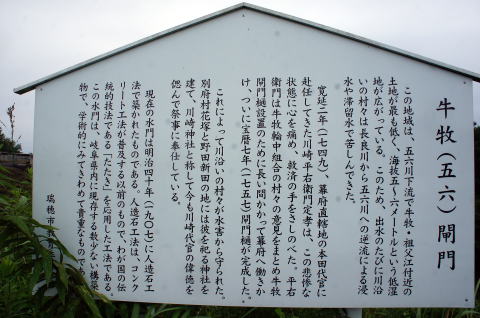 牛牧(五六)閘門
この地域は、五六川下流で牛牧・祖父江付近の
土地が最も低く、海抜五〜六メートルという低湿
地が広がっている。このため、出水のたびに川沿
いの村々は長良川から五六川への逆流による浸
水や滞留水で苦しんできた。
寛延二年(一七四九)、幕府直轄地の本田代官に
赴任してきた川崎平右衛門定孝は、この悲惨な
状態に心を痛め、救済の手をさしのべた。平右
衛門は牛牧輪中組合の村々の意見をまとめ牛牧
閘門樋設置のために長い間かかって幕府へ働きか
け、ついに宝暦七年(一七五七)閘門樋が完成した。
これによって川沿いの村々が水害から守られた。
別府村花塚と野田新田の地には彼を祀る神社を
建て、川崎神社と称して今も川崎代官の偉徳を
偲んで祭事に奉仕している。
現在の水門は明治四十年(一九〇七)に人造石工
法で築かれたものである。人造石工法は、コンク
リート工法が普及する以前のもので、わが国の伝
統的技法である「たたき」を応用した工法である。
この水門は、岐阜県内に現存する数少ない構築
物で、学術的にみてきわめて貴重なものである
瑞穂市